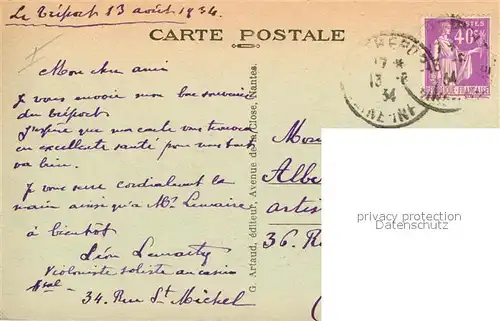 Le Tréport 13 août 1934.
CARTE POSTALE
Mon cher ami
Je vous envoie mon bon souvenir
du Tréport
J'espère que ma carte vous trouvera
en excellente santé pour vous tout
va bien.
Je vous serre cordialement la
main ainsi qu'à Mr Lemaire
à bientôt
Léon
Violoniste soliste au casino
34. Rue St Michel
G. Artaud, éditeur, Avenue de la Close, Nantes.
POSTES
40c
REPUBLIQUE FRANÇAISE
17
13 - 8
34
Mon
Albe
artis
36. R
privacy protection
Datenschutz